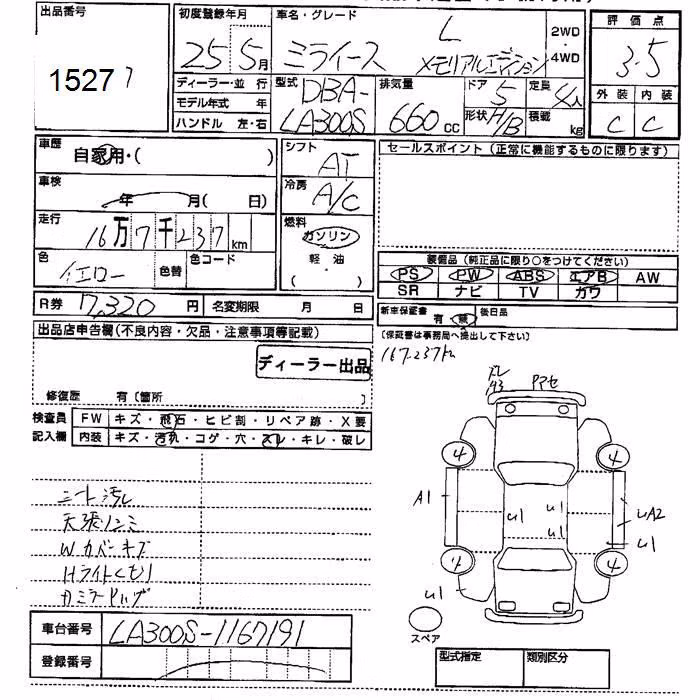 出品番号
15277
初度登録年月
25 5月
車名・グレード
L
ミライース メモリアルエディション
2WD
・
4WD
評価点
3.5
外装 内装
C C
ディーラー・並 行
モデル年式 年
ハンドル 左・右
型式 DBA-
LA300S
排気量
660 cc
ドア 5
形状 H/B
定員 4人
積載 kg
車歴 自家用・( )
車検 年 月( 日)
走行
16万7千237 km
色 イエロー 色替 色コード
シフト
AT
冷房
A/C
燃料
ガソリン
軽 油
・( )
セールスポイント (正常に機能するものに限ります)
装備品(純正品に限り○をつけてください)
PS PW ABS エアB AW
SR ナビ TV カワ
R券 7,320 円 名変期限 月 日
新車保証書 有・無 後日品
(保証書は事務局へ提出して下さい)
167.237km
出品店申告欄(不良内容・欠品・注意事項等記載)
ディーラー出品
修復歴 有(箇所 )
検査員 FW キズ・飛石・ヒビ割・リペア跡・X要
記入欄 内装 キズ・汚れ・コゲ・穴・スレ・キレ・破レ
シート汚レ
天張シミ
Wカバーキズ
Hライトくもり
PアセA1
U1
U1
U1
UA2
U1
U1
4
4
4
4
スペア
車台番号 LA300S-1167191
登録番号
型式指定 類別区分